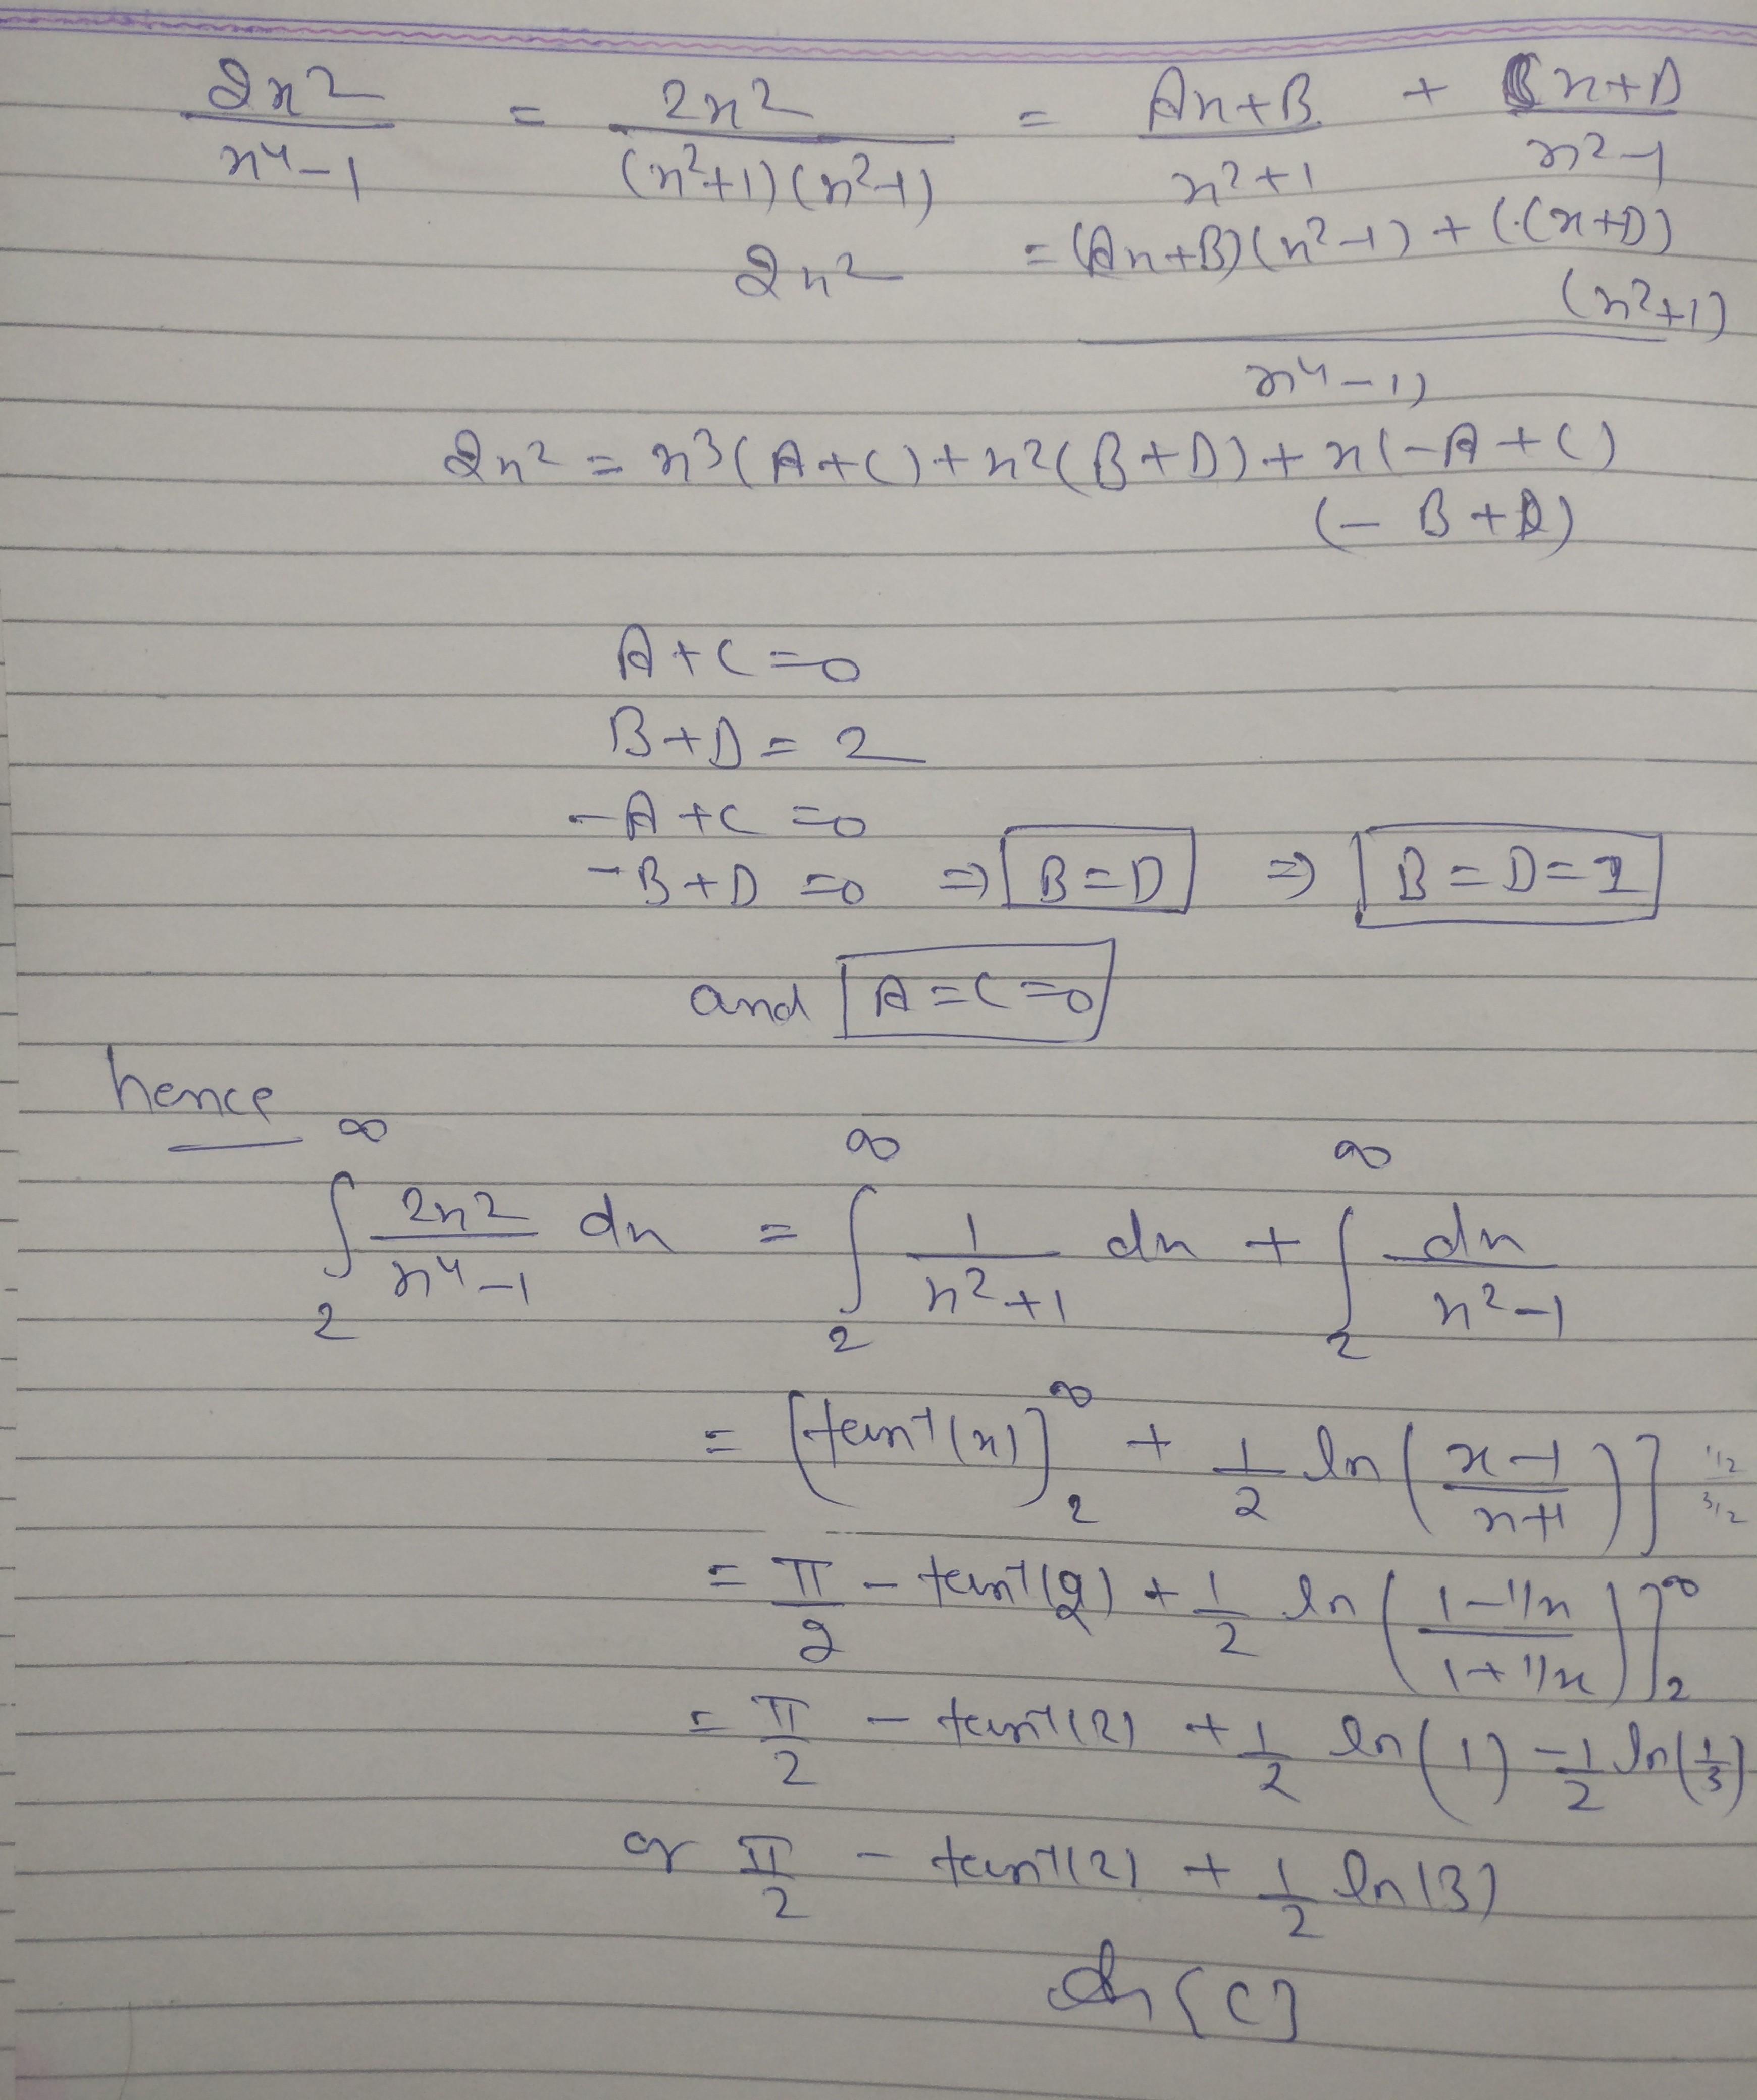 2x²/(x⁴-1) = 2x²/((x²+1)(x²-1)) = (Ax+B)/(x²+1) + (Cx+D)/(x²-1)
2x² = (Ax+B)(x²-1) + (Cx+D)
(x²+1)
x⁴-1)
2x² = x³(A+C)+x²(B+D)+x(-A+C)
(-B+D)
A+C=0
B+D=2
-A+C=0
-B+D=0 ⇒ B=D ⇒ B=D=1
and A=C=0
hence
∫₂^∞ 2x²/(x⁴-1) dx = ∫₂^∞ 1/(x²+1) dx + ∫₂^∞ dx/(x²-1)
= [tan⁻¹(x)]₂^∞ + 1/2 ln((x-1)/(x+1))] 1/2 / 3/2
= π/2 - tan⁻¹(2) + 1/2 ln((1-1/x)/(1+1/x))]₂^∞
= π/2 - tan⁻¹(2) + 1/2 ln(1) - 1/2 ln(1/3)
or π/2 - tan⁻¹(2) + 1/2 ln(3)
[C]